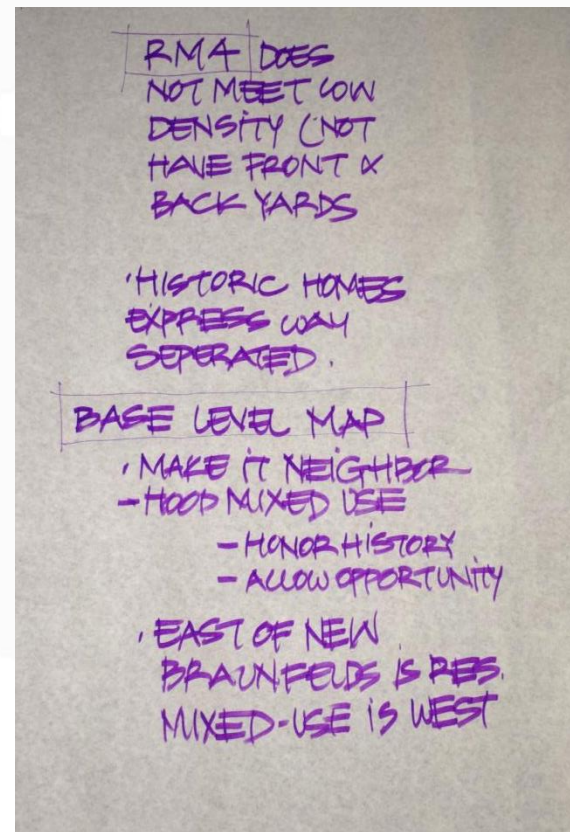 RM4 DOES
NOT MEET LOW
DENSITY (NOT
HAVE FRONT &
BACK YARDS
· HISTORIC HOMES
EXPRESS WAY
SEPERATED.
BASE LEVEL MAP
· MAKE IT NEIGHBOR
-HOOD MIXED USE
- HONOR HISTORY
- ALLOW OPPORTUNITY
· EAST OF NEW
BRAUNFELDS IS RES.
MIXED-USE IS WEST